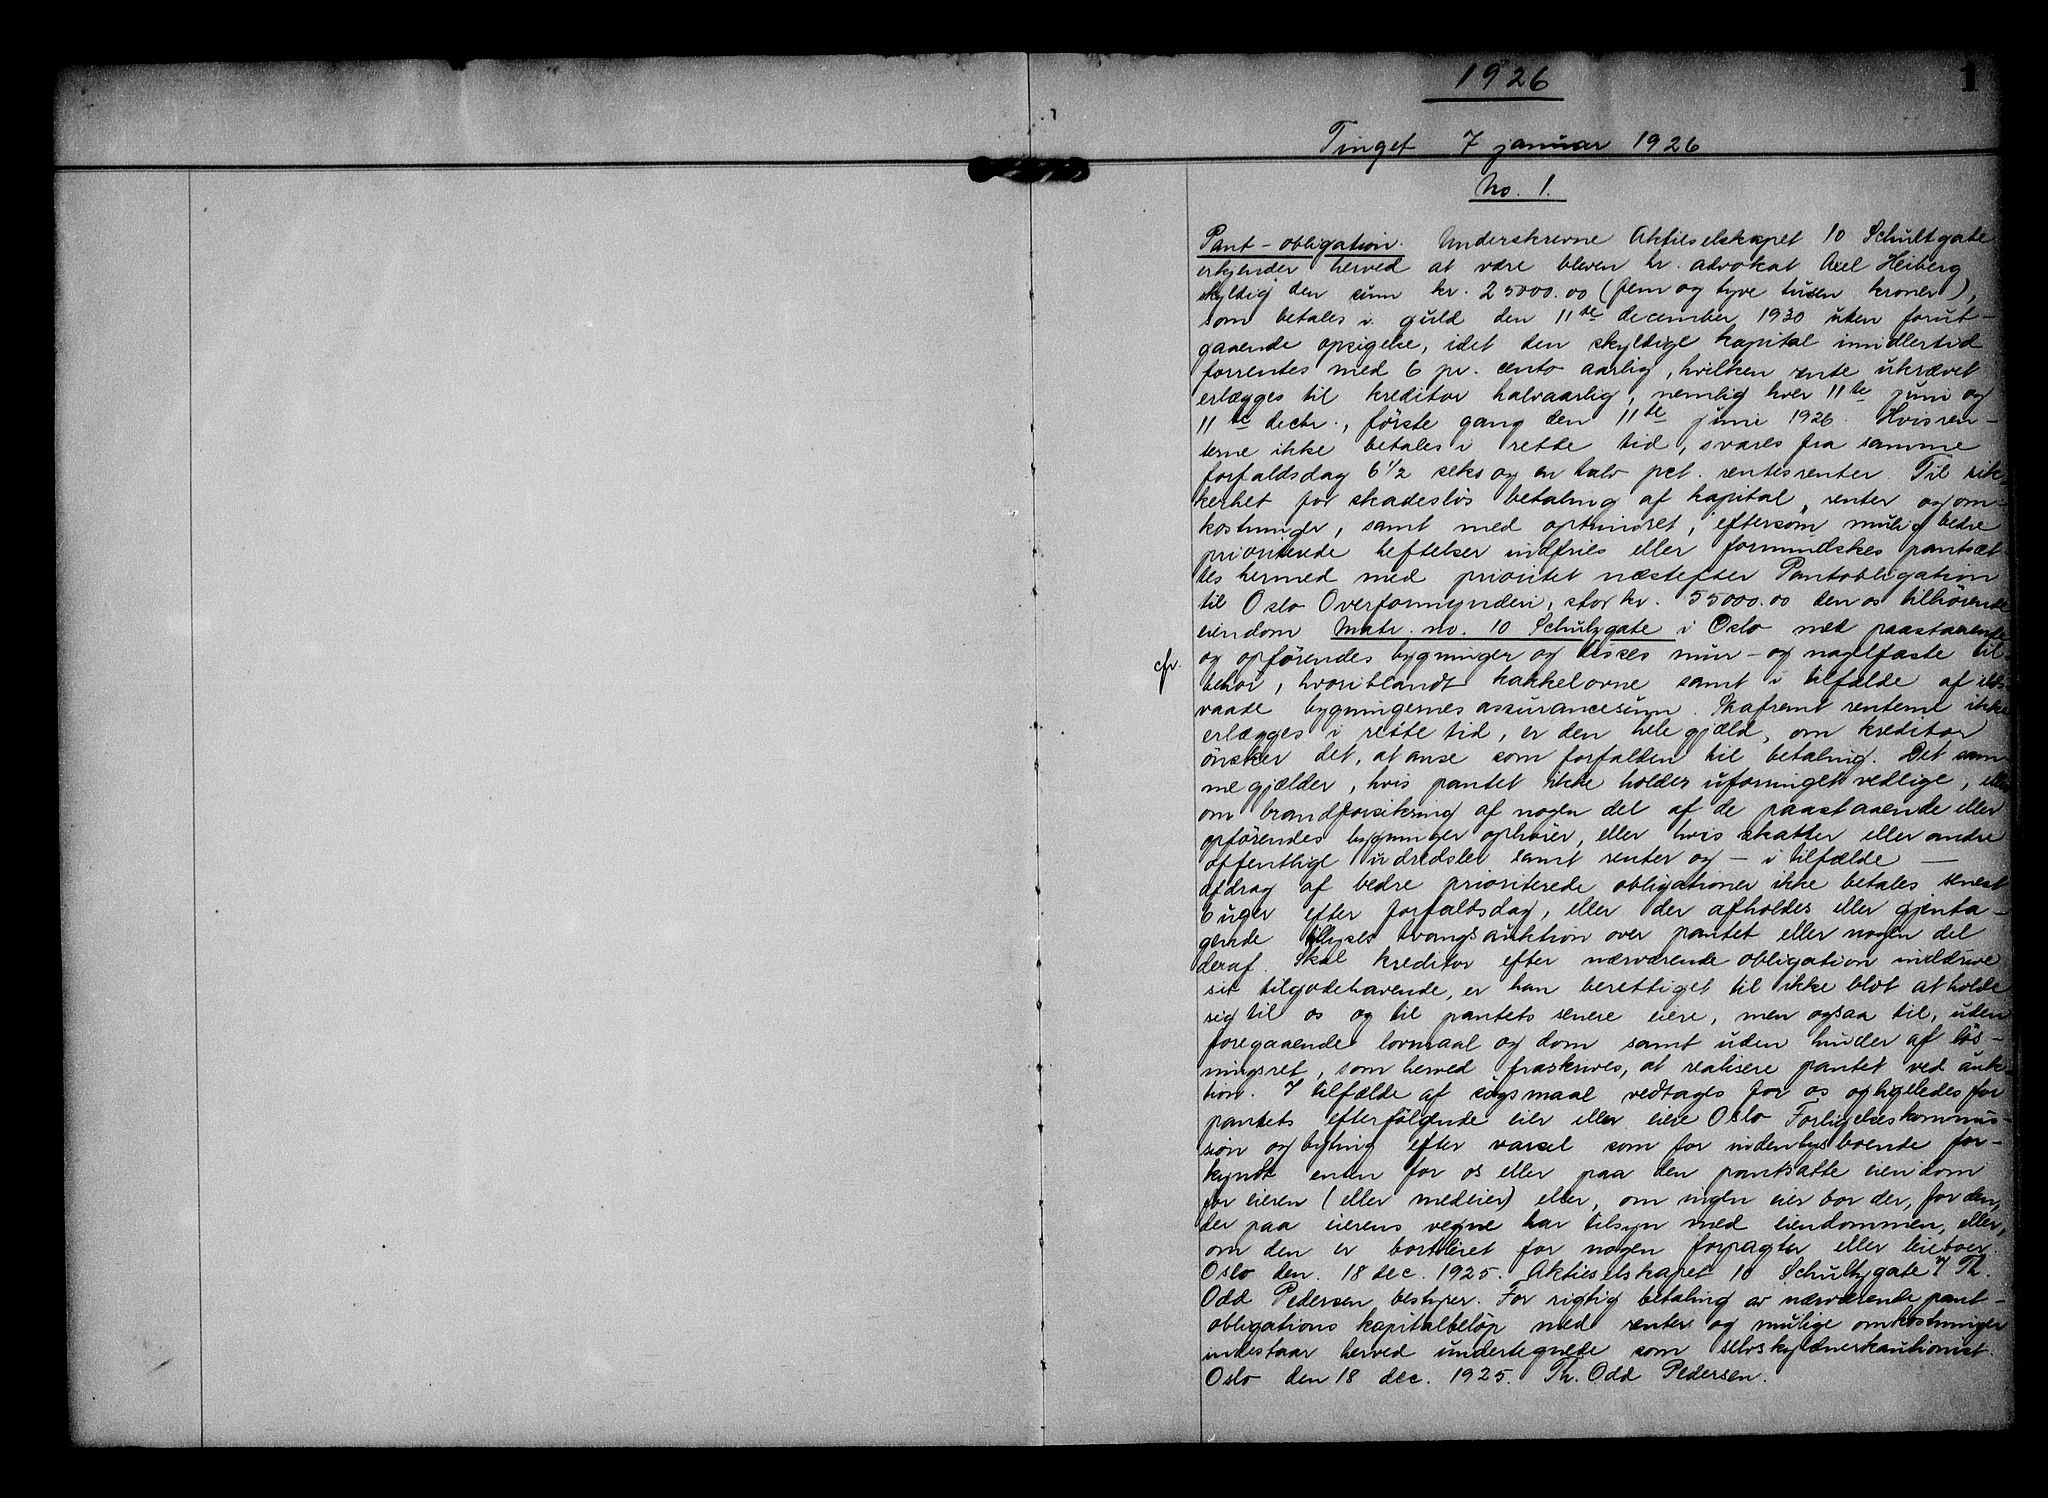 1926
1
Tinget 7 januar 1926
No. 1.
Pant-obligation. Underskrevne Aktieselskapet 10 Schultzgate
erkjender herved at være bleven hr. advokat Axel Heiberg
skyldig den sum kr. 25000.00 (fem og tyve tusen kroner),
som betales i guld den 11te december 1930 uten forut-
gaaende opsigelse, idet den skyldige kapital imidlertid
forrentes med 6 pr. cento aarlig, hvilken rente ukrævet
erlægges til kreditor halvaarlig, nemlig hver 11te juni og
11te decbr., første gang den 11te juni 1926. Hvis ren-
terne ikke betales i rette tid, svares fra samme
forfaldsdag 6 1/2 seks og en halv pct. rentesrenter. Til sik-
kerhet for skadesløs betaling af kapital, renter og om-
kostninger, samt med optrinsret, eftersom mulig bedre
prioriterede heftelser indfries eller formindskes pantsæt-
tes hermed med prioritet næstefter Pantobligation
til Oslo Overformynderi, stor kr. 55000.00 den os tilhørende
eiendom Matr. no. 10 Schultzgate i Oslo med paastaaende
og opførendes bygninger og disses mur- og nagelfaste til-
cfr.
behør, hvoriblandt kakkelovne samt i tilfælde af ilds-
vaade bygningernes assurancesum. Skafremt renterne ikke
erlægges i rette tid, er den hele gjæld, om kreditor
ønsker det, at anse som forfalden til betaling. Det sam-
me gjælder, hvis pantet ikke holdes uforringet vedlige, eller
om brandforsikring af nogen del af de paastaaende eller
opførendes bygninger ophører, eller hvis skatter eller andre
offentlige udredsler samt renter og - i tilfælde -
afdrag af bedre prioriterede obligationer ikke betales senest
6 uger efter forfaldsdag, eller der afholdes eller gjenta-
gende tillyses tvangsauktion over pantet eller nogen del
deraf. Skal kreditor efter nærværende obligation inddrive
sit tilgodehavende, er han berettiget til ikke blot at holde
sig til os og til pantets senere eiere, men ogsaa til, uden
foregaaende lovmaal og dom samt uden hinder af løs-
ningsret, som herved fraskrives, at realisere pantet ved auk-
tion. I tilfælde af søgsmaal vedtages for os og ligeledes for
pantets efterfølgende eier eller eiere Oslo Forligelseskommis-
sion og byting efter varsel som for indenbysboende for-
kyndt enten for os eller paa den pantsatte eiendom
for eieren (eller medeier) eller, om ingen eier bor der, for den,
der paa eierens vegne har tilsyn med eiendommen, eller,
om den er bortleiet for nogen forpagter eller leieboer.
Oslo den. 18 dec. 1925. Aktieselskapet 10 Schultzgate Th.
Odd Pedersen bestyrer. For rigtig betaling av nærværende pant-
obligations kapitalbeløp med renter og mulige omkostninger
indestaar herved undertegnede som selvskyldnerkautionist.
Oslo den 18 dec. 1925. Th. Odd Pedersen.